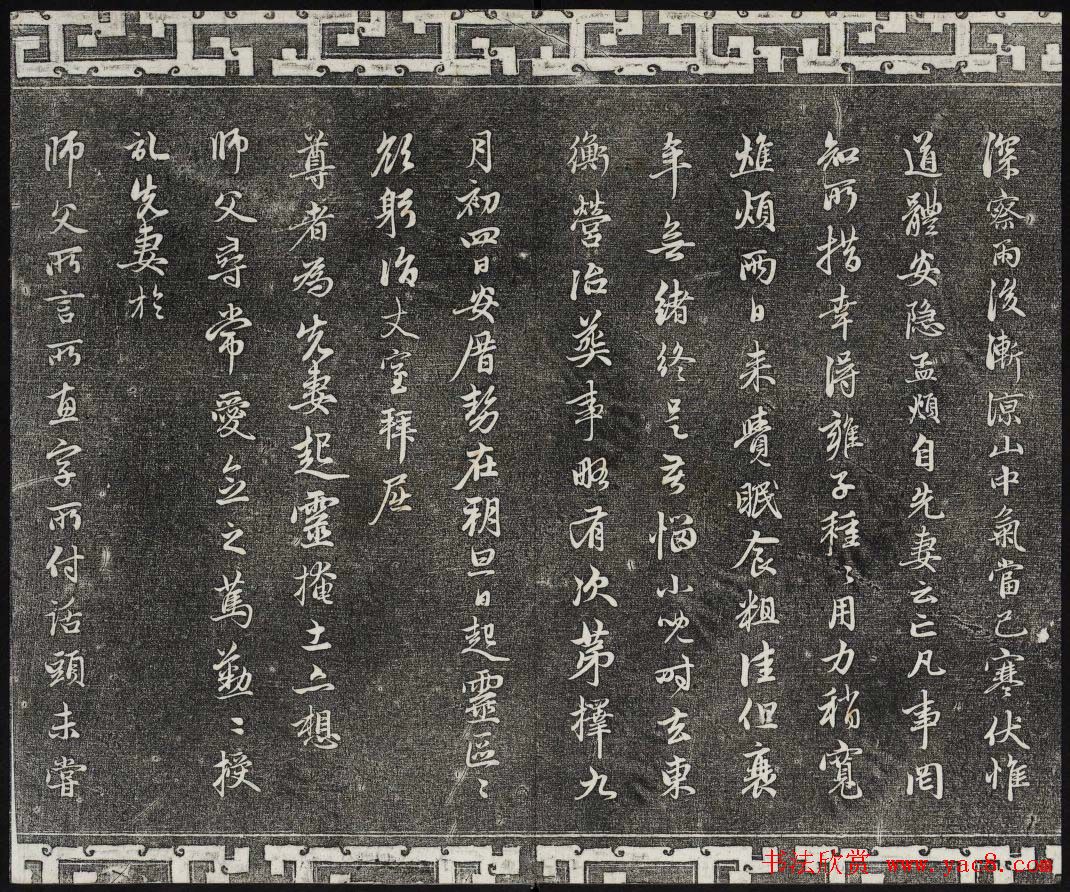 深察雨後漸涼山中氣當已寒伏惟
道體安隐孟頫自先妻云亡凡事罔
知所措幸得雍子種〻用力稍寬
煩兩日来覺眠食粗佳但衰
年無緒終是苦惱小兒時去東
衡營治葬事略有次第擇九
月初四日安厝勢在朔旦日起靈區〻
欲躬詣丈室拜屈
尊者為先妻起靈掩土亡想
師父尋常愛念之篤勤〻授
記先妻於
師父所言所直字所付話頭未嘗
书法欣赏 www.yac8.com